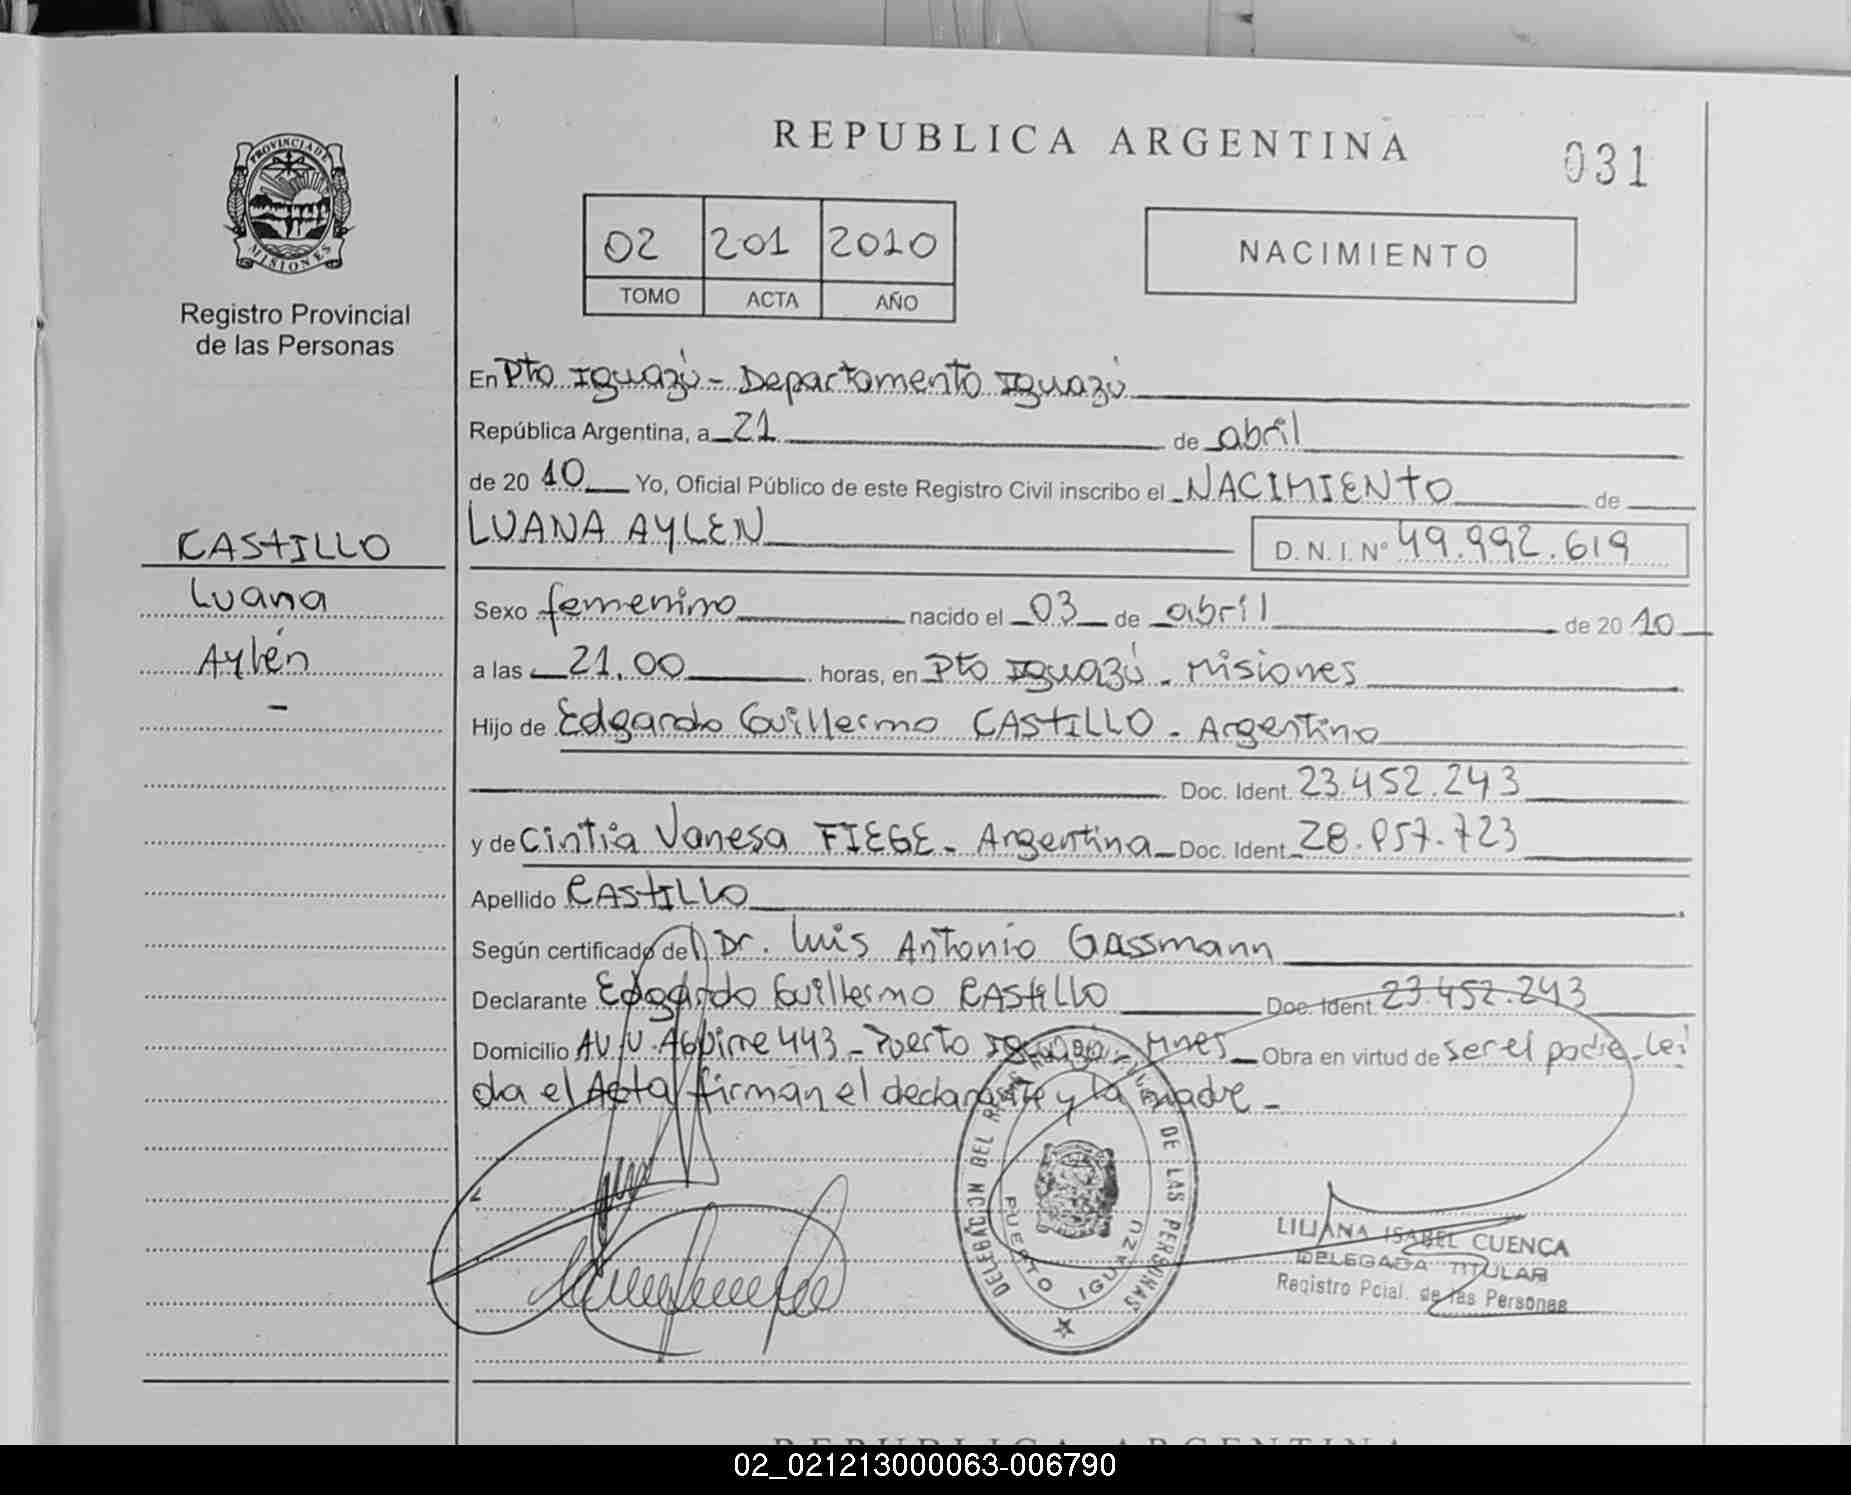 REPUBLICA ARGENTINA
031
PROVINCIA DE
MISIONES
Registro Provincial
de las Personas
02 201 2010
TOMO ACTA AÑO
NACIMIENTO
En Pto Iguazú - Departamento Iguazú
República Argentina, a 21 de abril
de 20 10 Yo, Oficial Público de este Registro Civil inscribo el NACIMIENTO de
CASTILLO
Luana
Aylén
-
LUANA AYLEN D. N. I. N° 49.992.619
Sexo femenino nacido el 03 de abril de 20 10
a las 21.00 horas, en Pto Iguazú - Misiones
Hijo de Edgardo Guillermo CASTILLO - Argentino
Doc. Ident. 23.452.243
y de Cintia Vanesa FIEGE - Argentina - Doc. Ident. 28.957.723
Apellido CASTILLO
Según certificado del Dr. Luis Antonio Gassmann
Declarante Edgardo Guillermo CASTILLO Doc. Ident. 23.452.243
Domicilio AV. V. Aguirre 443 - Puerto Iguazú - Mnes Obra en virtud de ser el padre - Leí
da el Acta firman el declarante y la madre -
DE LAS PERSONAS
PUERTO IGUAZU
LILIANA ISABEL CUENCA
DELEGADA TITULAR
Registro Pcial. de las Personas
REPUBLICA ARGENTINA
02_021213000063-006790